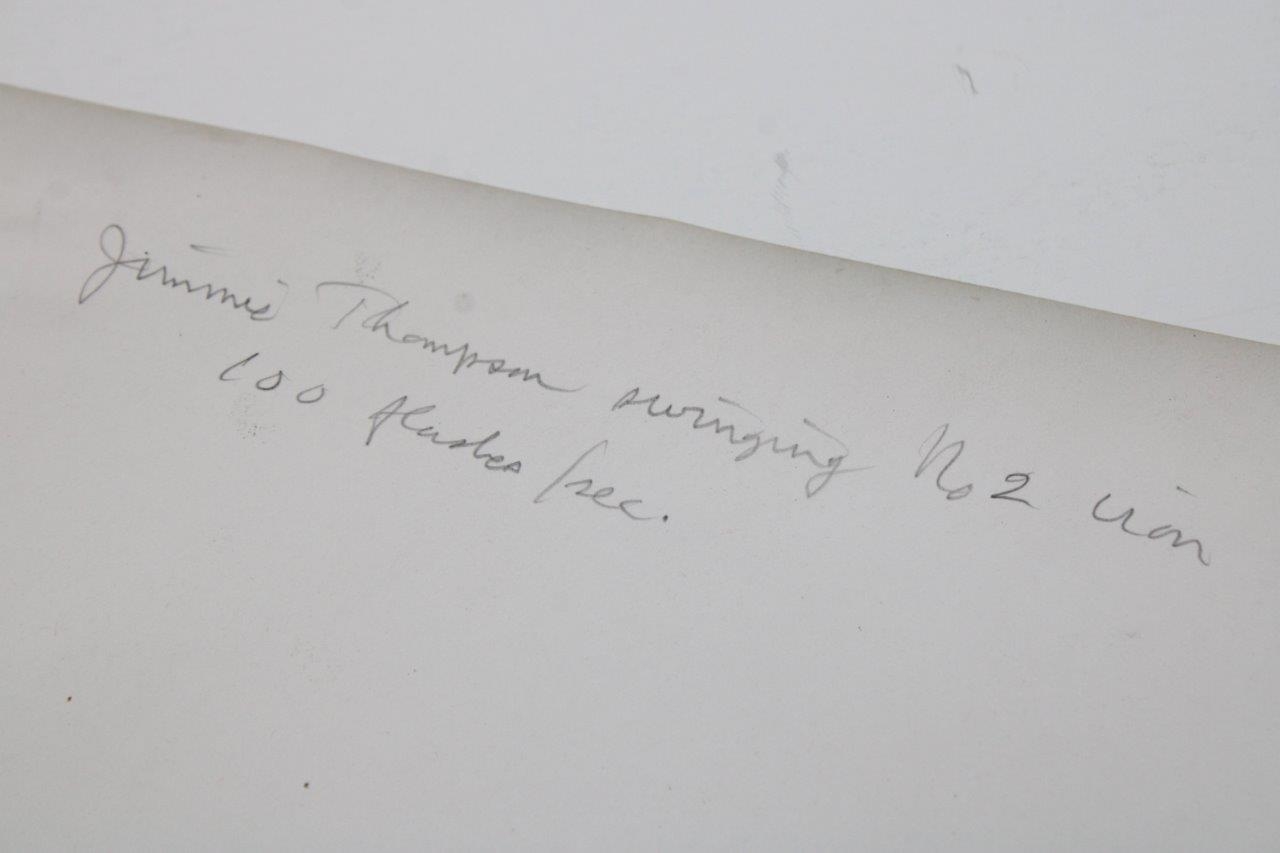 Jimmie Thompson swinging No 2 iron
100 flashes/sec.